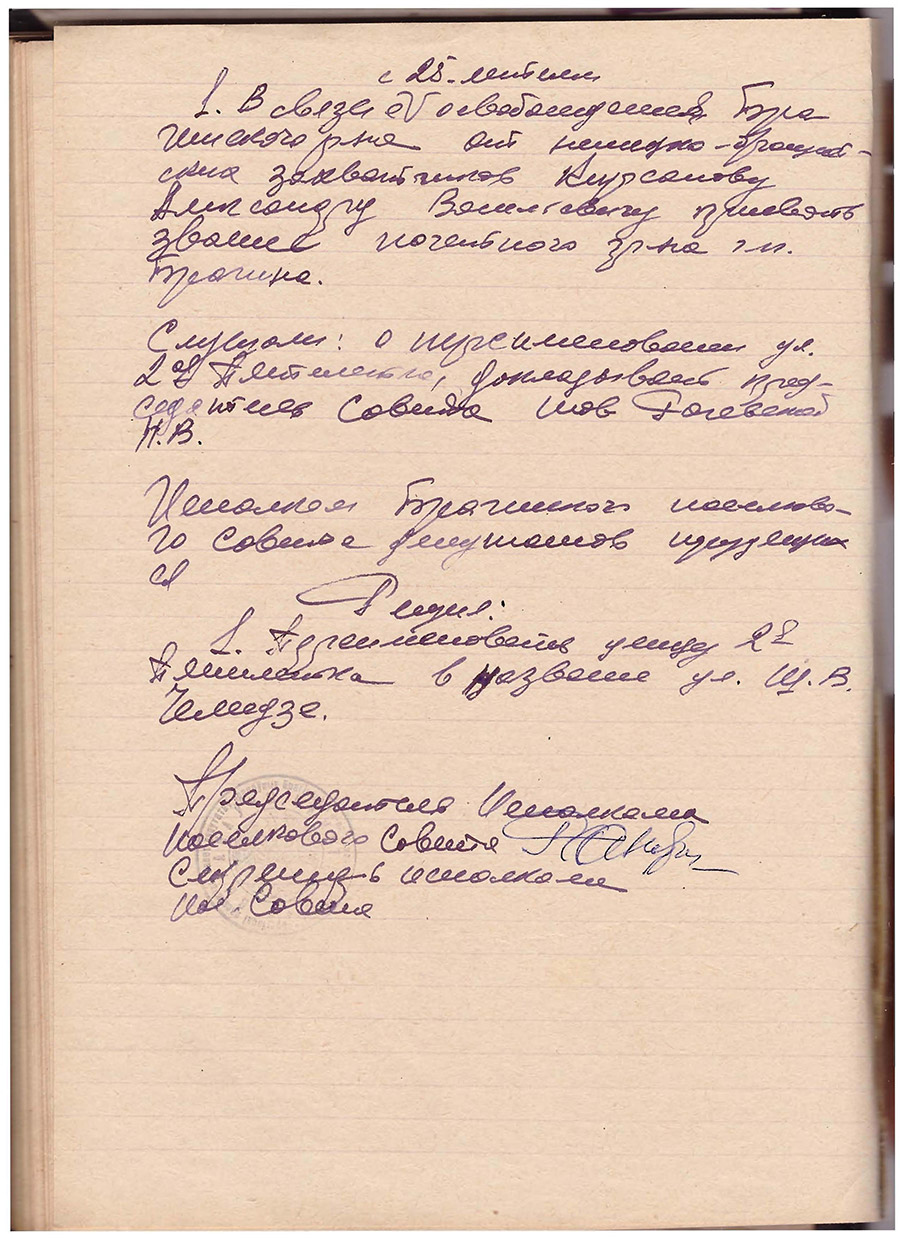 с 25-летием
1. В связи с освобождения Бра
гинского р-на от немецко-фашист-
ских захватчиков Кирсанову
Александру Васильевичу присвоить
звание почетного гр-на г.п.
Брагина.
Слушали: о переименовании ул.
2ой Пятилетки, докладывает пред-
седатель Совета тов
П.В.
Исполком Брагинского поселково-
го Совета депутатов трудящих
ся
Решил:
1. Переименовать улицу 2я
Пятилетка в название ул. Щ.В.
Чемидзе.
Председатель Исполкома
поселкового Совета
Секретарь исполкома
пос. Совета